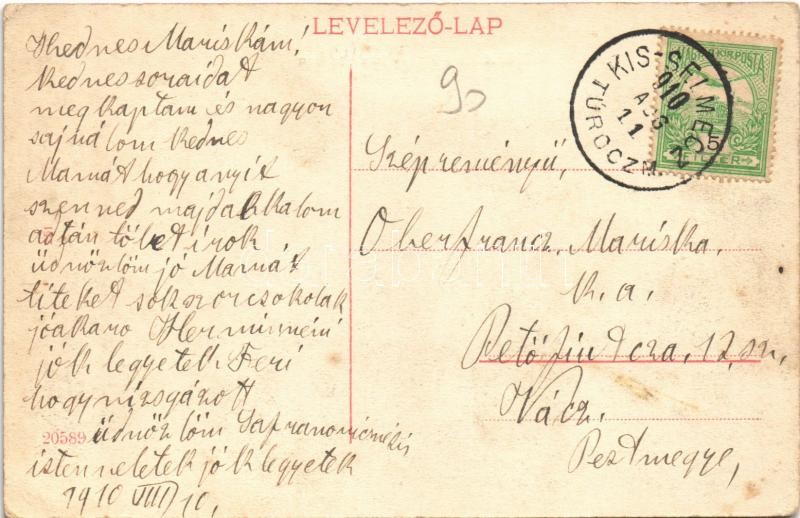 LEVELEZŐ-LAP
Kedves Mariskám!
kedves soraidat
megkaptam és nagyon
sajnálom kedves
Mamát hogy anyit
szenved majd alkalom
adtán töbet irok
üdvözlöm jó Mamát
titeket sokszor csokolak
jóakaro Herminnéni
jók legyetek Feri
hogy vizsgázott
üdvözlöm
isten veletek jók legyetek
1910 VIII/10.
20589
90
MAGYAR KIR. POSTA
5
FILLÉR
KIS-SELMECZ
910
AUG
11
TÚRÓCZ M.
Szépreményű,
Oberfrancz Mariska
k. a.
Petőfi utcza, 12, sz.
Vácz.
Pestmegye,